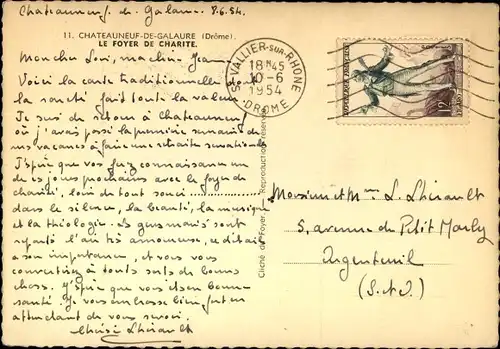 Chateauneuf de Galaure 8.6.54.
11. CHATEAUNEUF-DE-GALAURE (Drôme).
LE FOYER DE CHARITE.
Mon cher Loui, ma chère Jeanne
Voici la carte traditionnelle dont
la rareté fait toute la valeur.
Je suis de retour à Chateauneuf
où j'avais passé la première semaine de
mes vacances à faire une retraite
J'espère que vous ferez connaissance un
de ces jours prochains avec le foyer de
charité, loin de tout souci
dans le silence, la beauté, la musique
et la théologie. Les gourmets sont
l'air très amoureux, ce détail
a son importance, et vous vous
convertirez à toutes sortes de bonnes
choses. J'espère que vous êtes en bonne
santé. Je vous embrasse bien fort en
attendant de vous revoir.
Lhérault
ST VALLIER-SUR-RHONE
18H45
10-6
1954
DROME
REPUBLIQUE FRANÇAISE
12F
Cliché du Foyer. Reproduction réservée
Monsieur et Mme L. Lhérault
5, avenue du Petit Marly
Argenteuil
(S.-et-O.)